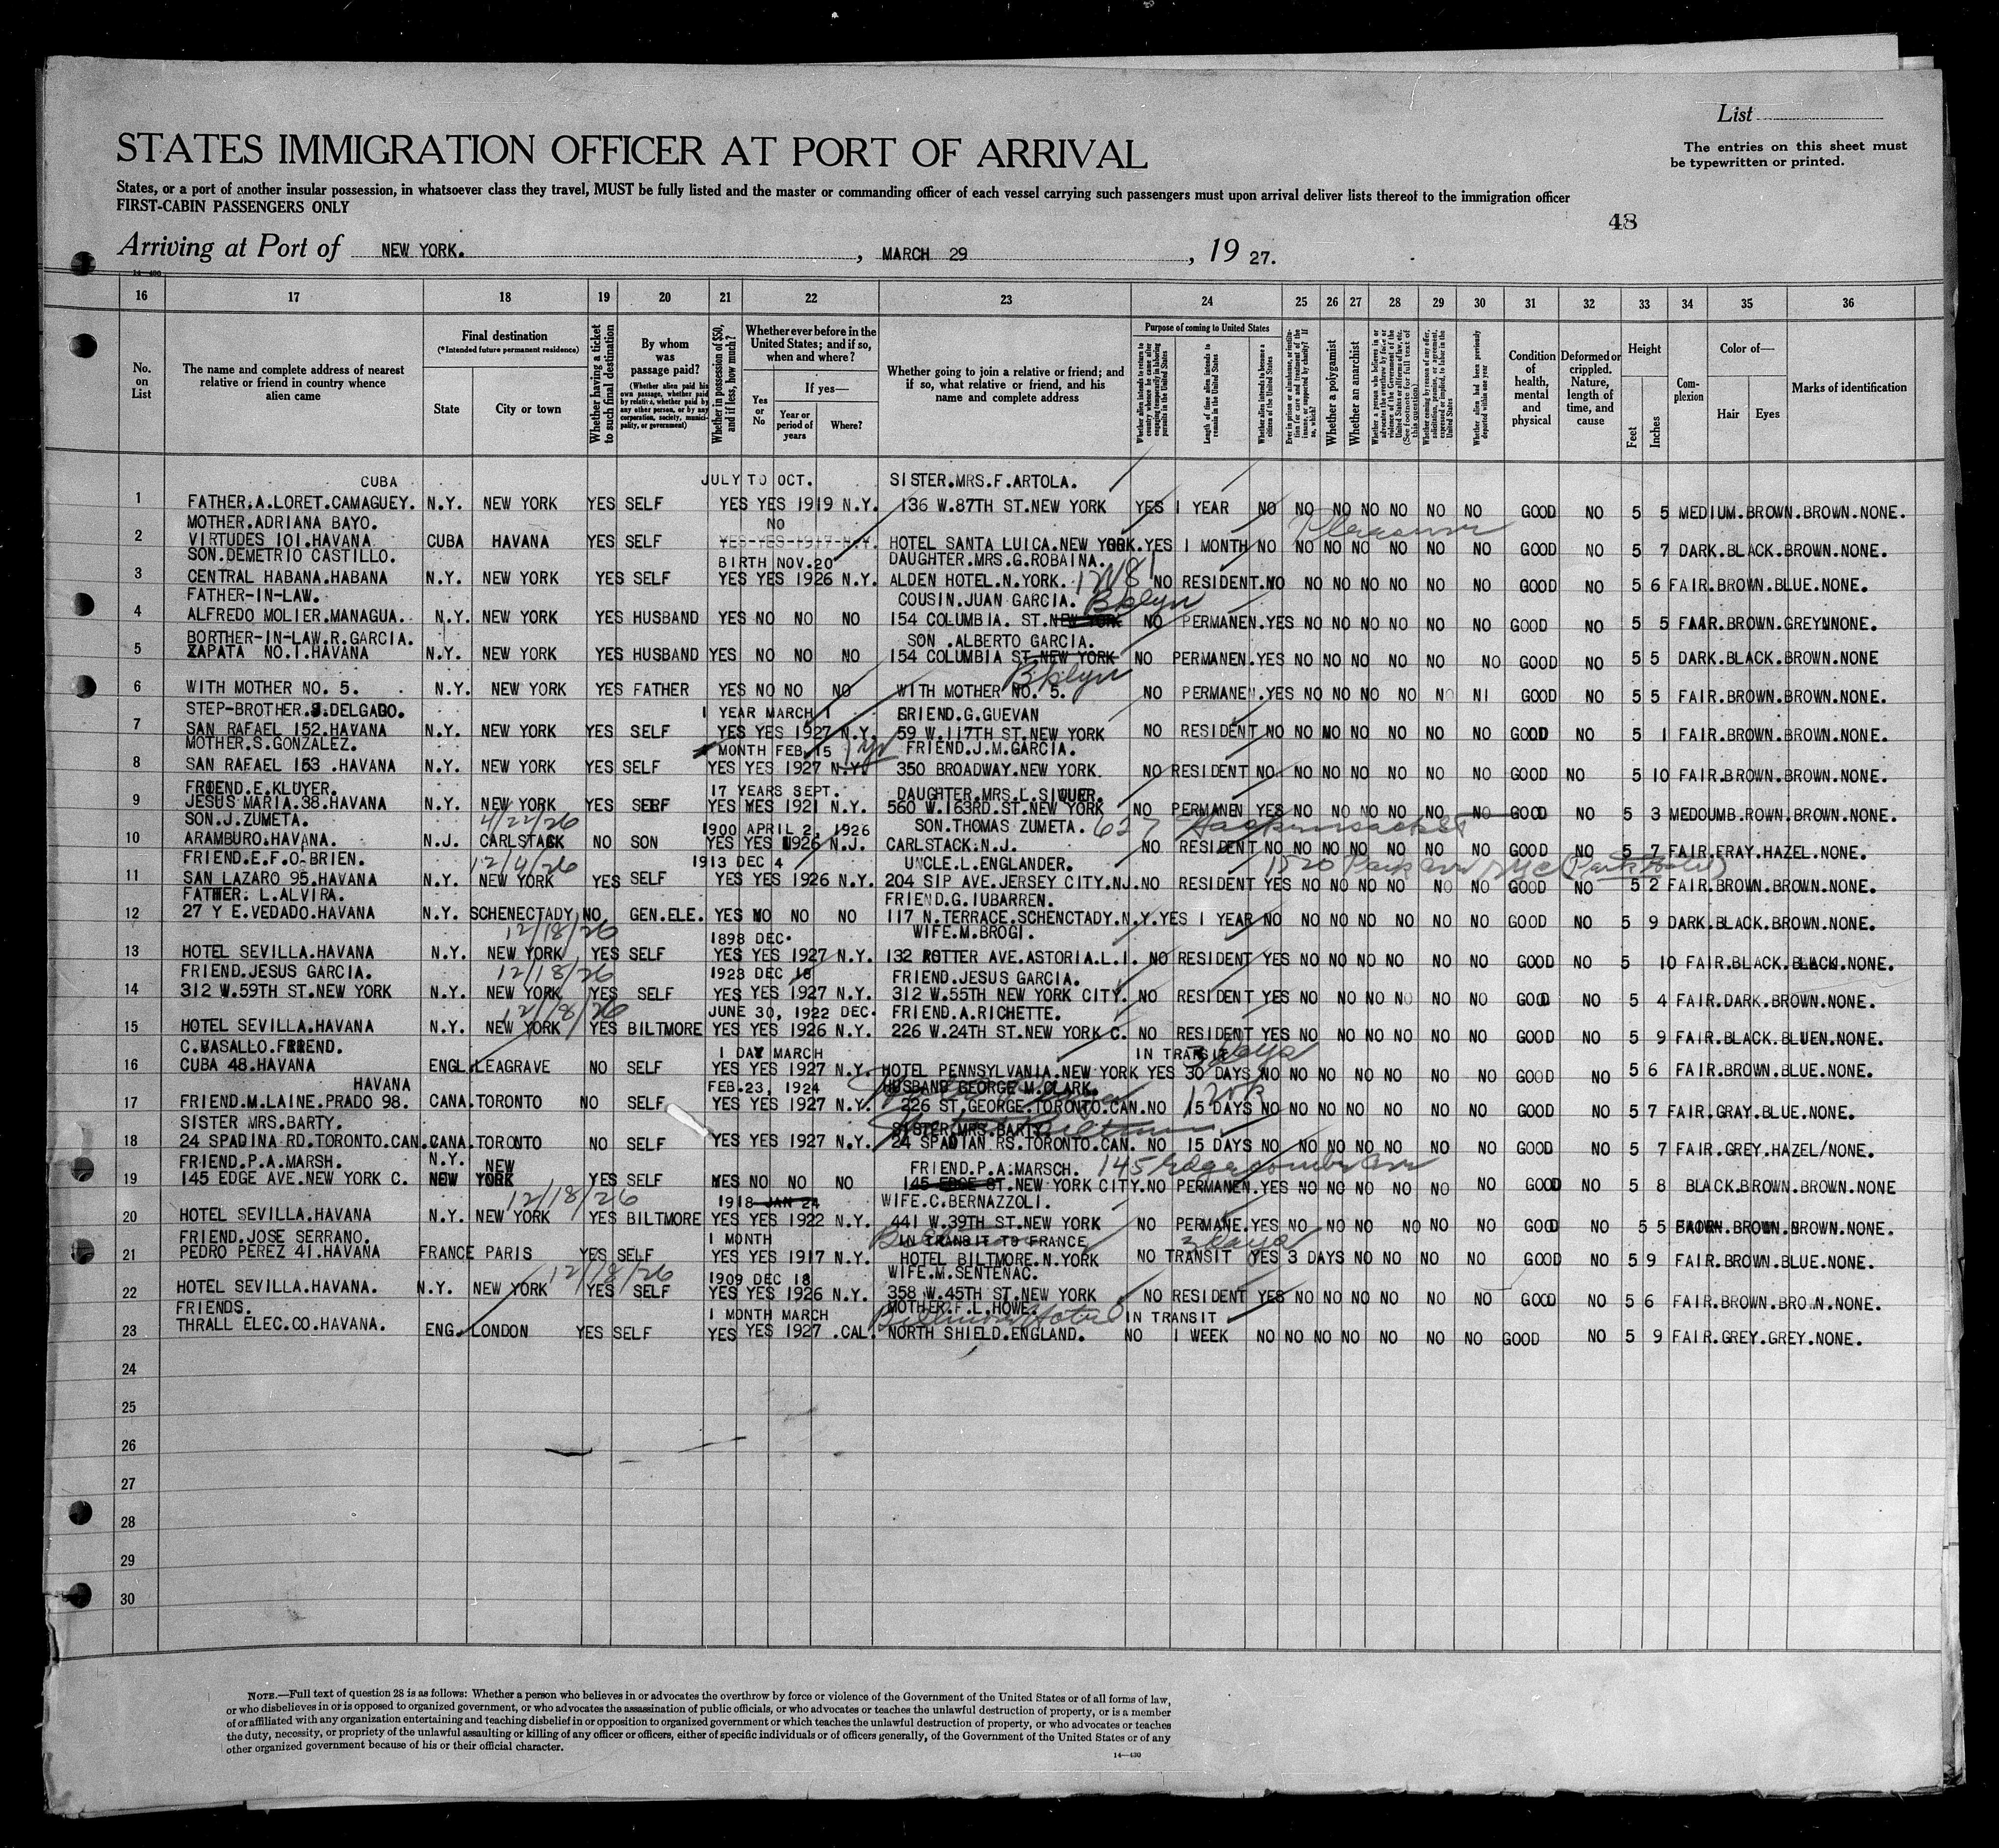 List
STATES IMMIGRATION OFFICER AT PORT OF ARRIVAL
The entries on this sheet must
be typewritten or printed.
States, or a port of another insular possession, in whatsoever class they travel, MUST be fully listed and the master or commanding officer of each vessel carrying such passengers must upon arrival deliver lists thereof to the immigration officer
FIRST-CABIN PASSENGERS ONLY
48
Arriving at Port of NEW YORK. , MARCH 29 , 19 27.
14-430
16 17 18 19 20 21 22 23 24 25 26 27 28 29 30 31 32 33 34 35 36
No. on List
The name and complete address of nearest relative or friend in country whence alien came
Final destination
(*Intended future permanent residence)
State
City or town
Whether having a ticket to such final destination
By whom was passage paid?
(Whether alien paid his own passage, whether paid by relative, whether paid by any other person, or by any corporation, society, municipality, or government)
Whether in possession of $50, and if less, how much?
Whether ever before in the United States; and if so, when and where?
Yes or No
If yes—
Year or period of years
Where?
Whether going to join a relative or friend; and if so, what relative or friend, and his name and complete address
Purpose of coming to United States
Whether alien intends to return to country whence he came after engaging temporarily in laboring pursuits in the United States
Length of time alien intends to remain in the United States
Whether alien intends to become a citizen of the United States
Ever in prison or almshouse, or institution for care and treatment of the insane, or supported by charity? If so, which?
Whether a polygamist
Whether an anarchist
Whether a person who believes in or advocates the overthrow by force or violence of the Government of the United States or all forms of law, etc. (See footnote for full text of this question)
Whether coming by reason of any offer, solicitation, promise, or agreement, expressed or implied, to labor in the United States
Whether alien had been previously deported within one year
Condition of health, mental and physical
Deformed or crippled. Nature, length of time, and cause
Height
Feet
Inches
Complexion
Color of—
Hair
Eyes
Marks of identification
CUBA JULY TO OCT. SISTER.MRS.F.ARTOLA.
1 FATHER.A.LORET.CAMAGUEY. N.Y. NEW YORK YES SELF YES YES 1919 N.Y. 136 W.87TH ST.NEW YORK YES 1 YEAR NO NO NO NO NO NO NO GOOD NO 5 5 MEDIUM.BROWN.BROWN.NONE.
MOTHER.ADRIANA BAYO. NO Pleasure
2 VIRTUDES 101.HAVANA CUBA HAVANA YES SELF YES-YES-1917-N.Y. HOTEL SANTA LUICA.NEW YORK.YES 1 MONTH NO NO NO NO NO NO NO GOOD NO 5 7 DARK.BLACK.BROWN.NONE.
SON.DEMETRIO CASTILLO. BIRTH NOV.20 DAUGHTER.MRS.G.ROBAINA.
3 CENTRAL HABANA.HABANA N.Y. NEW YORK YES SELF YES YES 1926 N.Y. ALDEN HOTEL.N.YORK. NO RESIDENT.NO NO NO NO NO NO NO GOOD NO 5 6 FAIR.BROWN.BLUE.NONE.
FATHER-IN-LAW. COUSIN.JUAN GARCIA. Bklyn
4 ALFREDO MOLIER.MANAGUA. N.Y. NEW YORK YES HUSBAND YES NO NO NO 154 COLUMBIA. ST.NEW YORK NO PERMANEN.YES NO NO NO NO NO NO GOOD NO 5 5 FAAR.BROWN.GREYNNONE.
BORTHER-IN-LAW.R.GARCIA. SON .ALBERTO GARCIA.
5 ZAPATA NO.1.HAVANA N.Y. NEW YORK YES HUSBAND YES NO NO NO 154 COLUMBIA ST.NEW YORK NO PERMANEN.YES NO NO NO NO NO NO GOOD NO 5 5 DARK.BLACK.BROWN.NONE
Bklyn
6 WITH MOTHER NO. 5. N.Y. NEW YORK YES FATHER YES NO NO NO WITH MOTHER NO. 5. NO PERMANEN.YES NO NO NO NO NO NI GOOD NO 5 5 FAIR.BROWN.BROWN.NONE.
STEP-BROTHER.S.DELGADO. 1 YEAR MARCH 1 FRIEND.G.GUEVAN
7 SAN RAFAEL 152.HAVANA N.Y. NEW YORK YES SELF YES YES 1927 N.Y. 59 W.117TH ST.NEW YORK NO RESIDENT NO NO NO NO NO NO NO GOOD NO 5 1 FAIR.BROWN.BROWN.NONE.
MOTHER.S.GONZALEZ. MONTH FEB.15 FRIEND.J.M.GARCIA.
8 SAN RAFAEL 153 .HAVANA N.Y. NEW YORK YES SELF YES YES 1927 N.Y. 350 BROADWAY.NEW YORK. NO RESIDENT NO NO NO NO NO NO NO GOOD NO 5 10 FAIR.BROWN.BROWN.NONE.
FRIEND.E.KLUYER. 17 YEARS SEPT. DAUGHTER.MRS.L.SIQUER.
9 JESUS MARIA.38.HAVANA N.Y. NEW YORK YES SELF YES YES 1921 N.Y. 560 W.163RD.ST.NEW YORK NO PERMANEN YES NO NO NO NO NO NO GOOD NO 5 3 MEDOUMB.ROWN.BROWN.NONE.
SON.J.ZUMETA. 4/22/26 1900 APRIL 2, 1926 SON.THOMAS ZUMETA. 627 Hackensack St
10 ARAMBURO.HAVANA. N.J. CARLSTACK NO SON YES YES 1926 N.J. CARLSTACK.N.J. NO RESIDENT NO NO NO NO NO NO NO GOOD NO 5 7 FAIR.FRAY.HAZEL.NONE.
FRIEND.E.F.O-BRIEN. 12/4/26 1913 DEC 4 UNCLE.L.ENGLANDER. 1520 Park Ave NYC (Park Hotel)
11 SAN LAZARO 95.HAVANA N.Y. NEW YORK YES SELF YES YES 1926 N.Y. 204 SIP AVE.JERSEY CITY.NJ.NO RESIDENT YES NO NO NO NO NO NO GOOD NO 5 2 FAIR.BROWN.BROWN.NONE.
FATHER. L.ALVIRA. FRIEND.G.IUBARREN.
12 27 Y E.VEDADO.HAVANA N.Y. SCHENECTADY NO GEN.ELE. YES NO NO NO 117 N.TERRACE.SCHENCTADY.N.Y.YES 1 YEAR NO NO NO NO NO NO NO GOOD NO 5 9 DARK.BLACK.BROWN.NONE.
12/18/26 1898 DEC. WIFE.M.BROGI.
13 HOTEL SEVILLA.HAVANA N.Y. NEW YORK YES SELF YES YES 1927 N.Y. 132 POTTER AVE.ASTORIA.L.I. NO RESIDENT YES NO NO NO NO NO NO GOOD NO 5 10 FAIR.BLACK.BLACK.NONE.
FRIEND.JESUS GARCIA. 12/18/26 1923 DEC 18 FRIEND.JESUS GARCIA.
14 312 W.59TH ST.NEW YORK N.Y. NEW YORK YES SELF YES YES 1927 N.Y. 312 W.55TH NEW YORK CITY. NO RESIDENT YES NO NO NO NO NO NO GOOD NO 5 4 FAIR.DARK.BROWN.NONE.
12/18/26 JUNE 30, 1922 DEC. FRIEND.A.RICHETTE.
15 HOTEL SEVILLA.HAVANA N.Y. NEW YORK YES BILTMORE YES YES 1926 N.Y. 226 W.24TH ST.NEW YORK C. NO RESIDENT YES NO NO NO NO NO NO GOOD NO 5 9 FAIR.BLACK.BLUEN.NONE.
C.VASALLO.FRIEND. 1 DAY MARCH IN TRANSIT 3 days
16 CUBA 48.HAVANA ENGL.LEAGRAVE NO SELF YES YES 1927 N.Y. HOTEL PENNSYLVANIA.NEW YORK YES 30 DAYS NO NO NO NO NO NO NO GOOD NO 5 6 FAIR.BROWN.BLUE.NONE.
HAVANA FEB.23, 1924 HUSBAND GEORGE M.CLARK.
17 FRIEND.M.LAINE.PRADO 98. CANA.TORONTO NO SELF YES YES 1927 N.Y. 226 ST.GEORGE.TORONTO.CAN.NO 15 DAYS NO NO NO NO NO NO NO GOOD NO 5 7 FAIR.GRAY.BLUE.NONE.
SISTER MRS.BARTY. SISTER.MRS.BARTY
18 24 SPADINA RD.TORONTO.CAN.CANA.TORONTO NO SELF YES YES 1927 N.Y. 24 SPADIAN RS.TORONTO.CAN. NO 15 DAYS NO NO NO NO NO NO NO GOOD NO 5 7 FAIR.GREY.HAZEL/NONE.
FRIEND.P.A.MARSH. N.Y. NEW FRIEND.P.A.MARSCH. 145 Edgecombe Ave
19 145 EDGE AVE.NEW YORK C. NEW YORK YES SELF YES NO NO NO 145 EDGE ST.NEW YORK CITY.NO PERMANEN.YES NO NO NO NO NO NO GOOD NO 5 8 BLACK.BROWN.BROWN.NONE
12/18/26 1918 JAN 24 WIFE.C.BERNAZZOLI.
20 HOTEL SEVILLA.HAVANA N.Y. NEW YORK YES BILTMORE YES YES 1922 N.Y. 441 W.39TH ST.NEW YORK NO PERMANE.YES NO NO NO NO NO NO GOOD NO 5 5 BROWN.BROWN.NONE.
FRIEND.JOSE SERRANO. 1 MONTH IN TRANSIT TO FRANCE 3 days
21 PEDRO PEREZ 41.HAVANA FRANCE PARIS YES SELF YES YES 1917 N.Y. HOTEL BILTMORE.N.YORK NO TRANSIT YES 3 DAYS NO NO NO NO NO GOOD NO 5 9 FAIR.BROWN.BLUE.NONE.
12/18/26 1909 DEC 18 WIFE.M.SENTENAC.
22 HOTEL SEVILLA.HAVANA. N.Y. NEW YORK YES SELF YES YES 1926 N.Y. 358 W.45TH ST.NEW YORK NO RESIDENT YES NO NO NO NO NO NO GOOD NO 5 6 FAIR.BROWN.BROWN.NONE.
FRIENDS. 1 MONTH MARCH MOTHER.F.L.HOWE. Biltmore Hotel IN TRANSIT
23 THRALL ELEC.CO.HAVANA. ENG. LONDON YES SELF YES YES 1927 .CAL. NORTH SHIELD.ENGLAND. NO 1 WEEK NO NO NO NO NO NO NO GOOD NO 5 9 FAIR.GREY.GREY.NONE.
24
25
26
27
28
29
30
NOTE.—Full text of question 28 is as follows: Whether a person who believes in or advocates the overthrow by force or violence of the Government of the United States or of all forms of law,
or who disbelieves in or is opposed to organized government, or who advocates the assassination of public officials, or who advocates or teaches the unlawful destruction of property, or is a member
of or affiliated with any organization entertaining and teaching disbelief in or opposition to organized government or which teaches the unlawful destruction of property, or who advocates or teaches
the duty, necessity, or propriety of the unlawful assaulting or killing of any officer or officers, either of specific individuals or of officers generally, of the Government of the United States or of any
other organized government because of his or their official character.
14—430